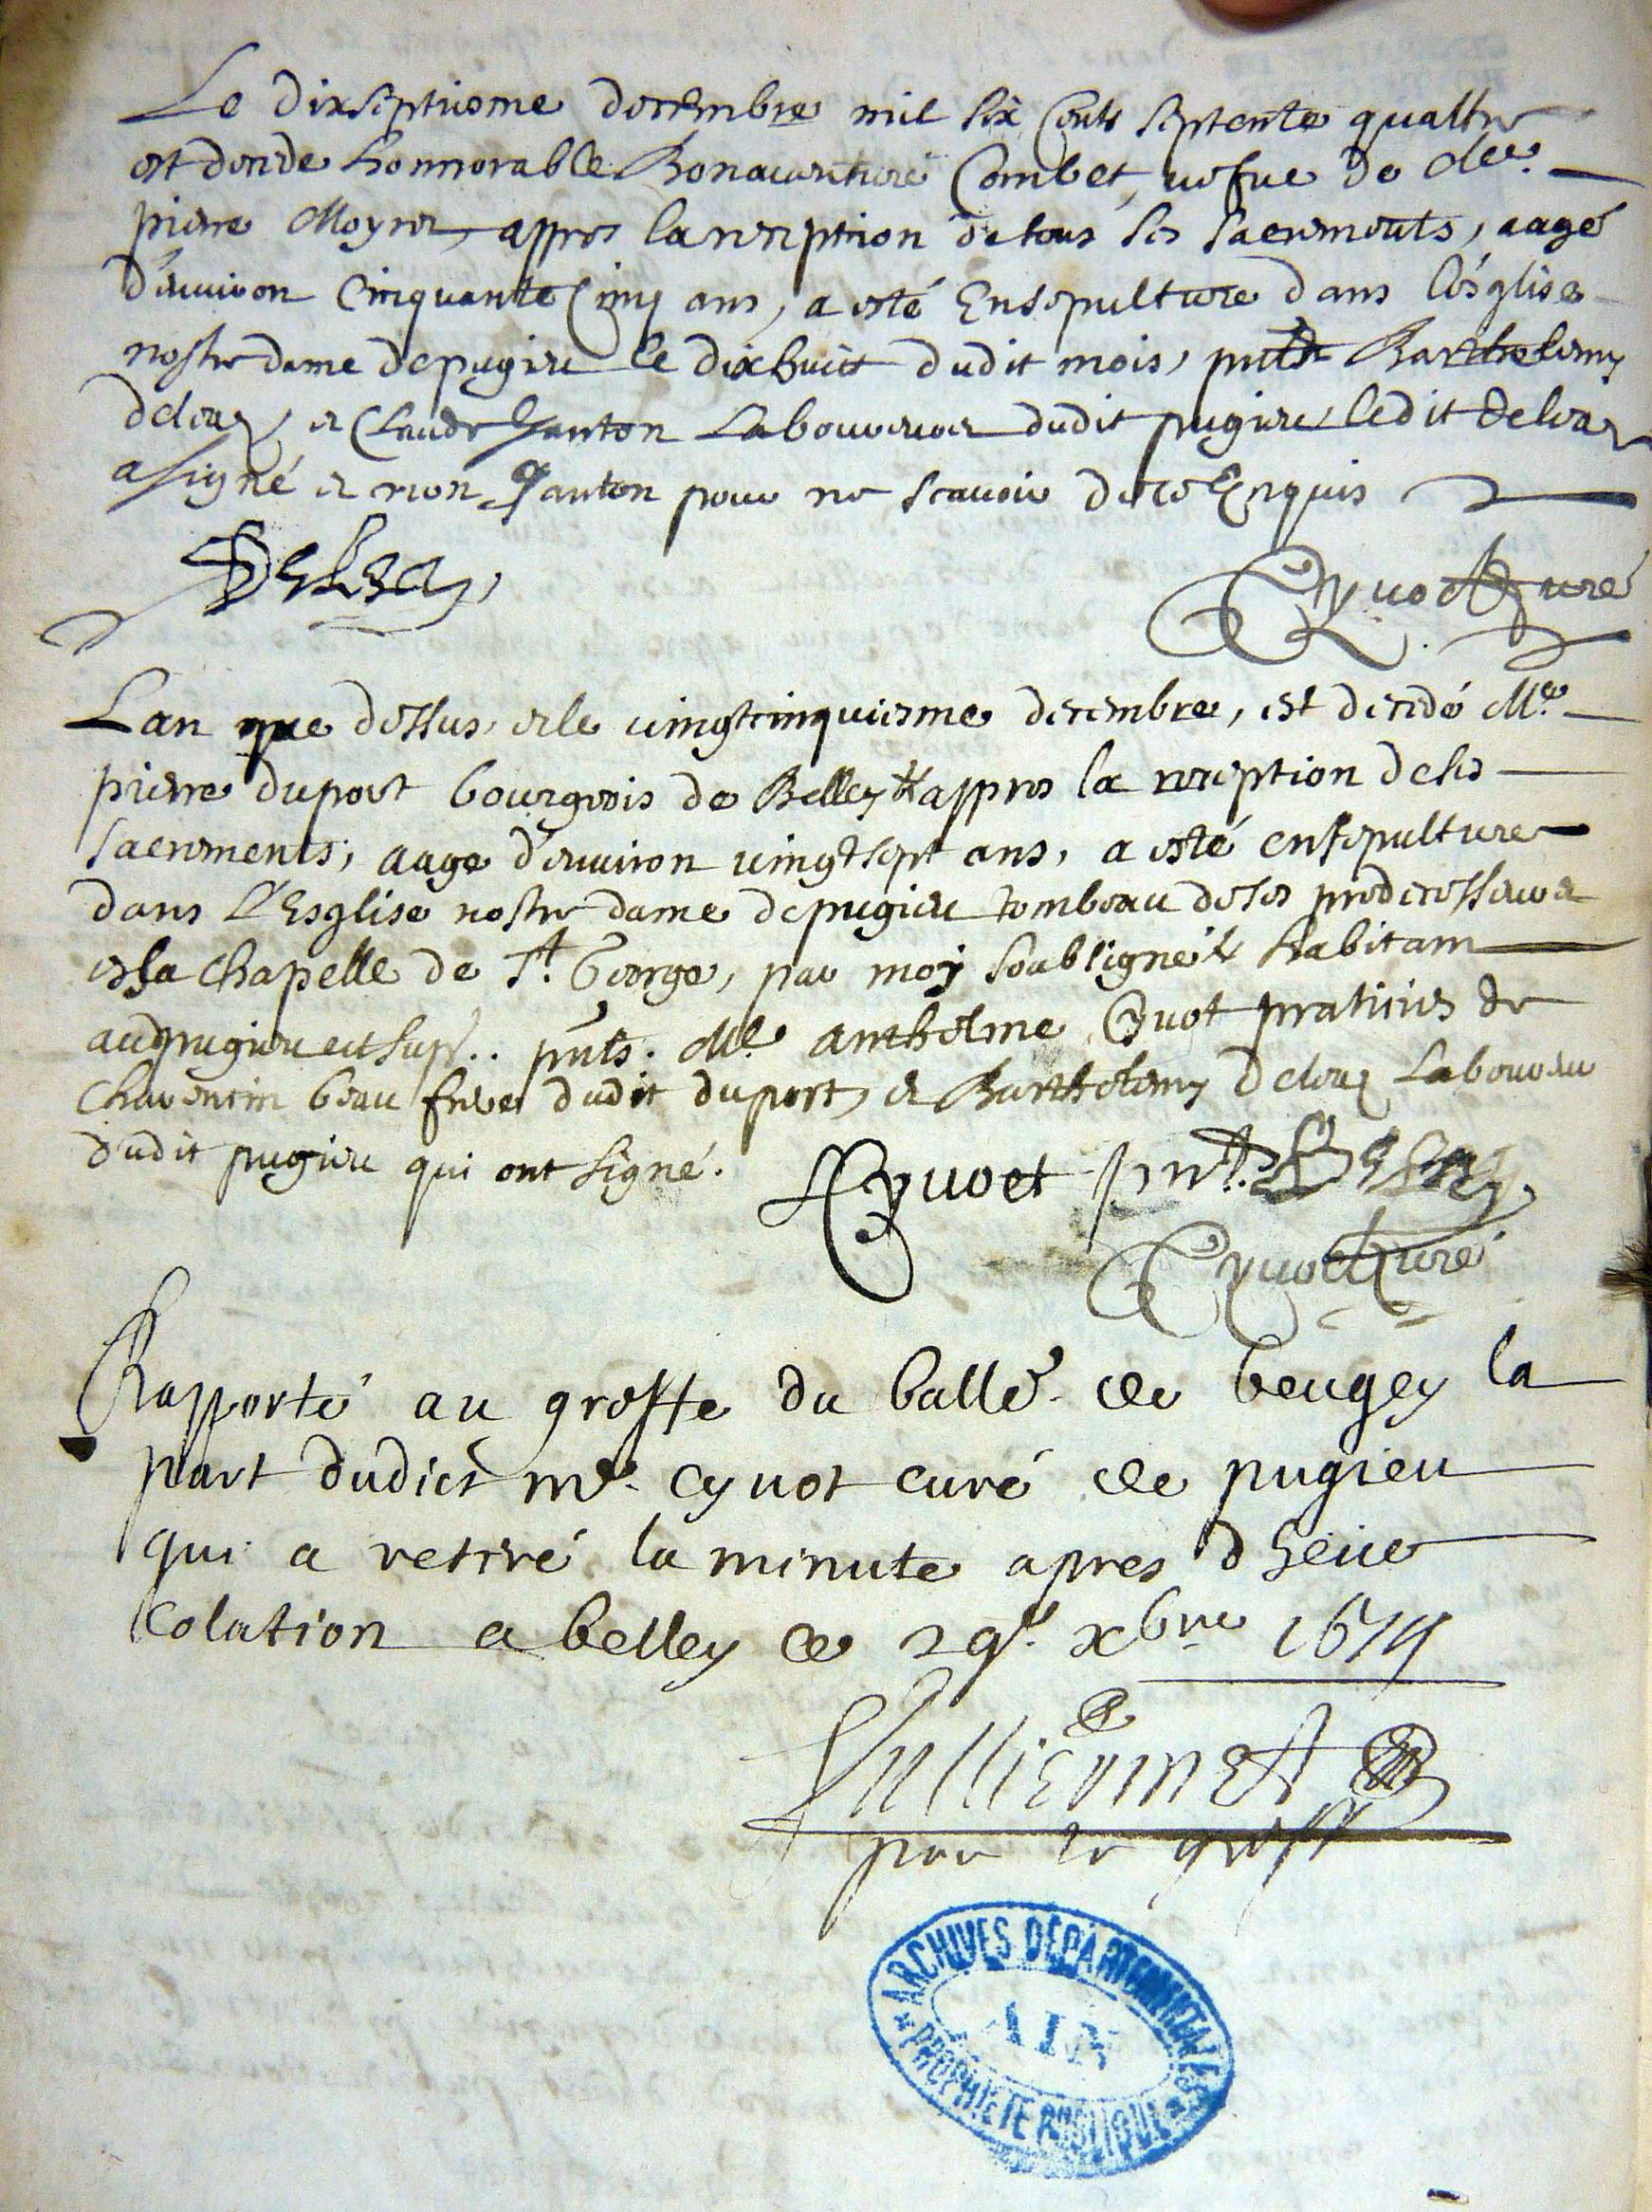 Le dixseptiesme decembre mil six Cents septente quattre
est decede honnorable Bonaventure Combet, vefve de Me.
pierre Moyret, appres la reception de tous ses sacrements, aagé
d'environ Cinquante Cinq ans, a esté Ensepulture dans l'esglise
nostre dame de pugieu le dixhuict dudit mois, pnts Barthelemy
deloaz, et Claude Janton Laboureurs dudit pugieu, ledit deloaz
a signé et non Janton pour ne scavoir de ce Enquis
Deloaz
Cyvoct Curé
L'an que dessus, et le vingtcinquiesme decembre, est decedé Me.
pierre duport bourgeois de Belley appres la reception de ses
sacrements, aage d'environ vingtsept ans, a esté ensepulture
dans L'Esglise nostre dame de pugieu tombeau de ses predecesseurs
et la Chapelle de St. George, par moy soubsigné habitant
aud pugieu pnts. Me. anthelme Cyvot praticien de
beau frere dudit duport, et Barthelemy deloaz Laboureur
dudit pugieu qui ont signé.
Cyvoct pnt. Deloaz
Cyvoct Curé
Rapporté au greffe du ballé. de beugey la
part dudict mr. Cyvot curé de pugieu
qui a retiré la minute apres dheue
colation a belley ce 29e. xbre 1674
Julliennet
par le greff
ARCHIVES DÉPARTEMENTALES
AIN
PROPRIÉTÉ PUBLIQUE